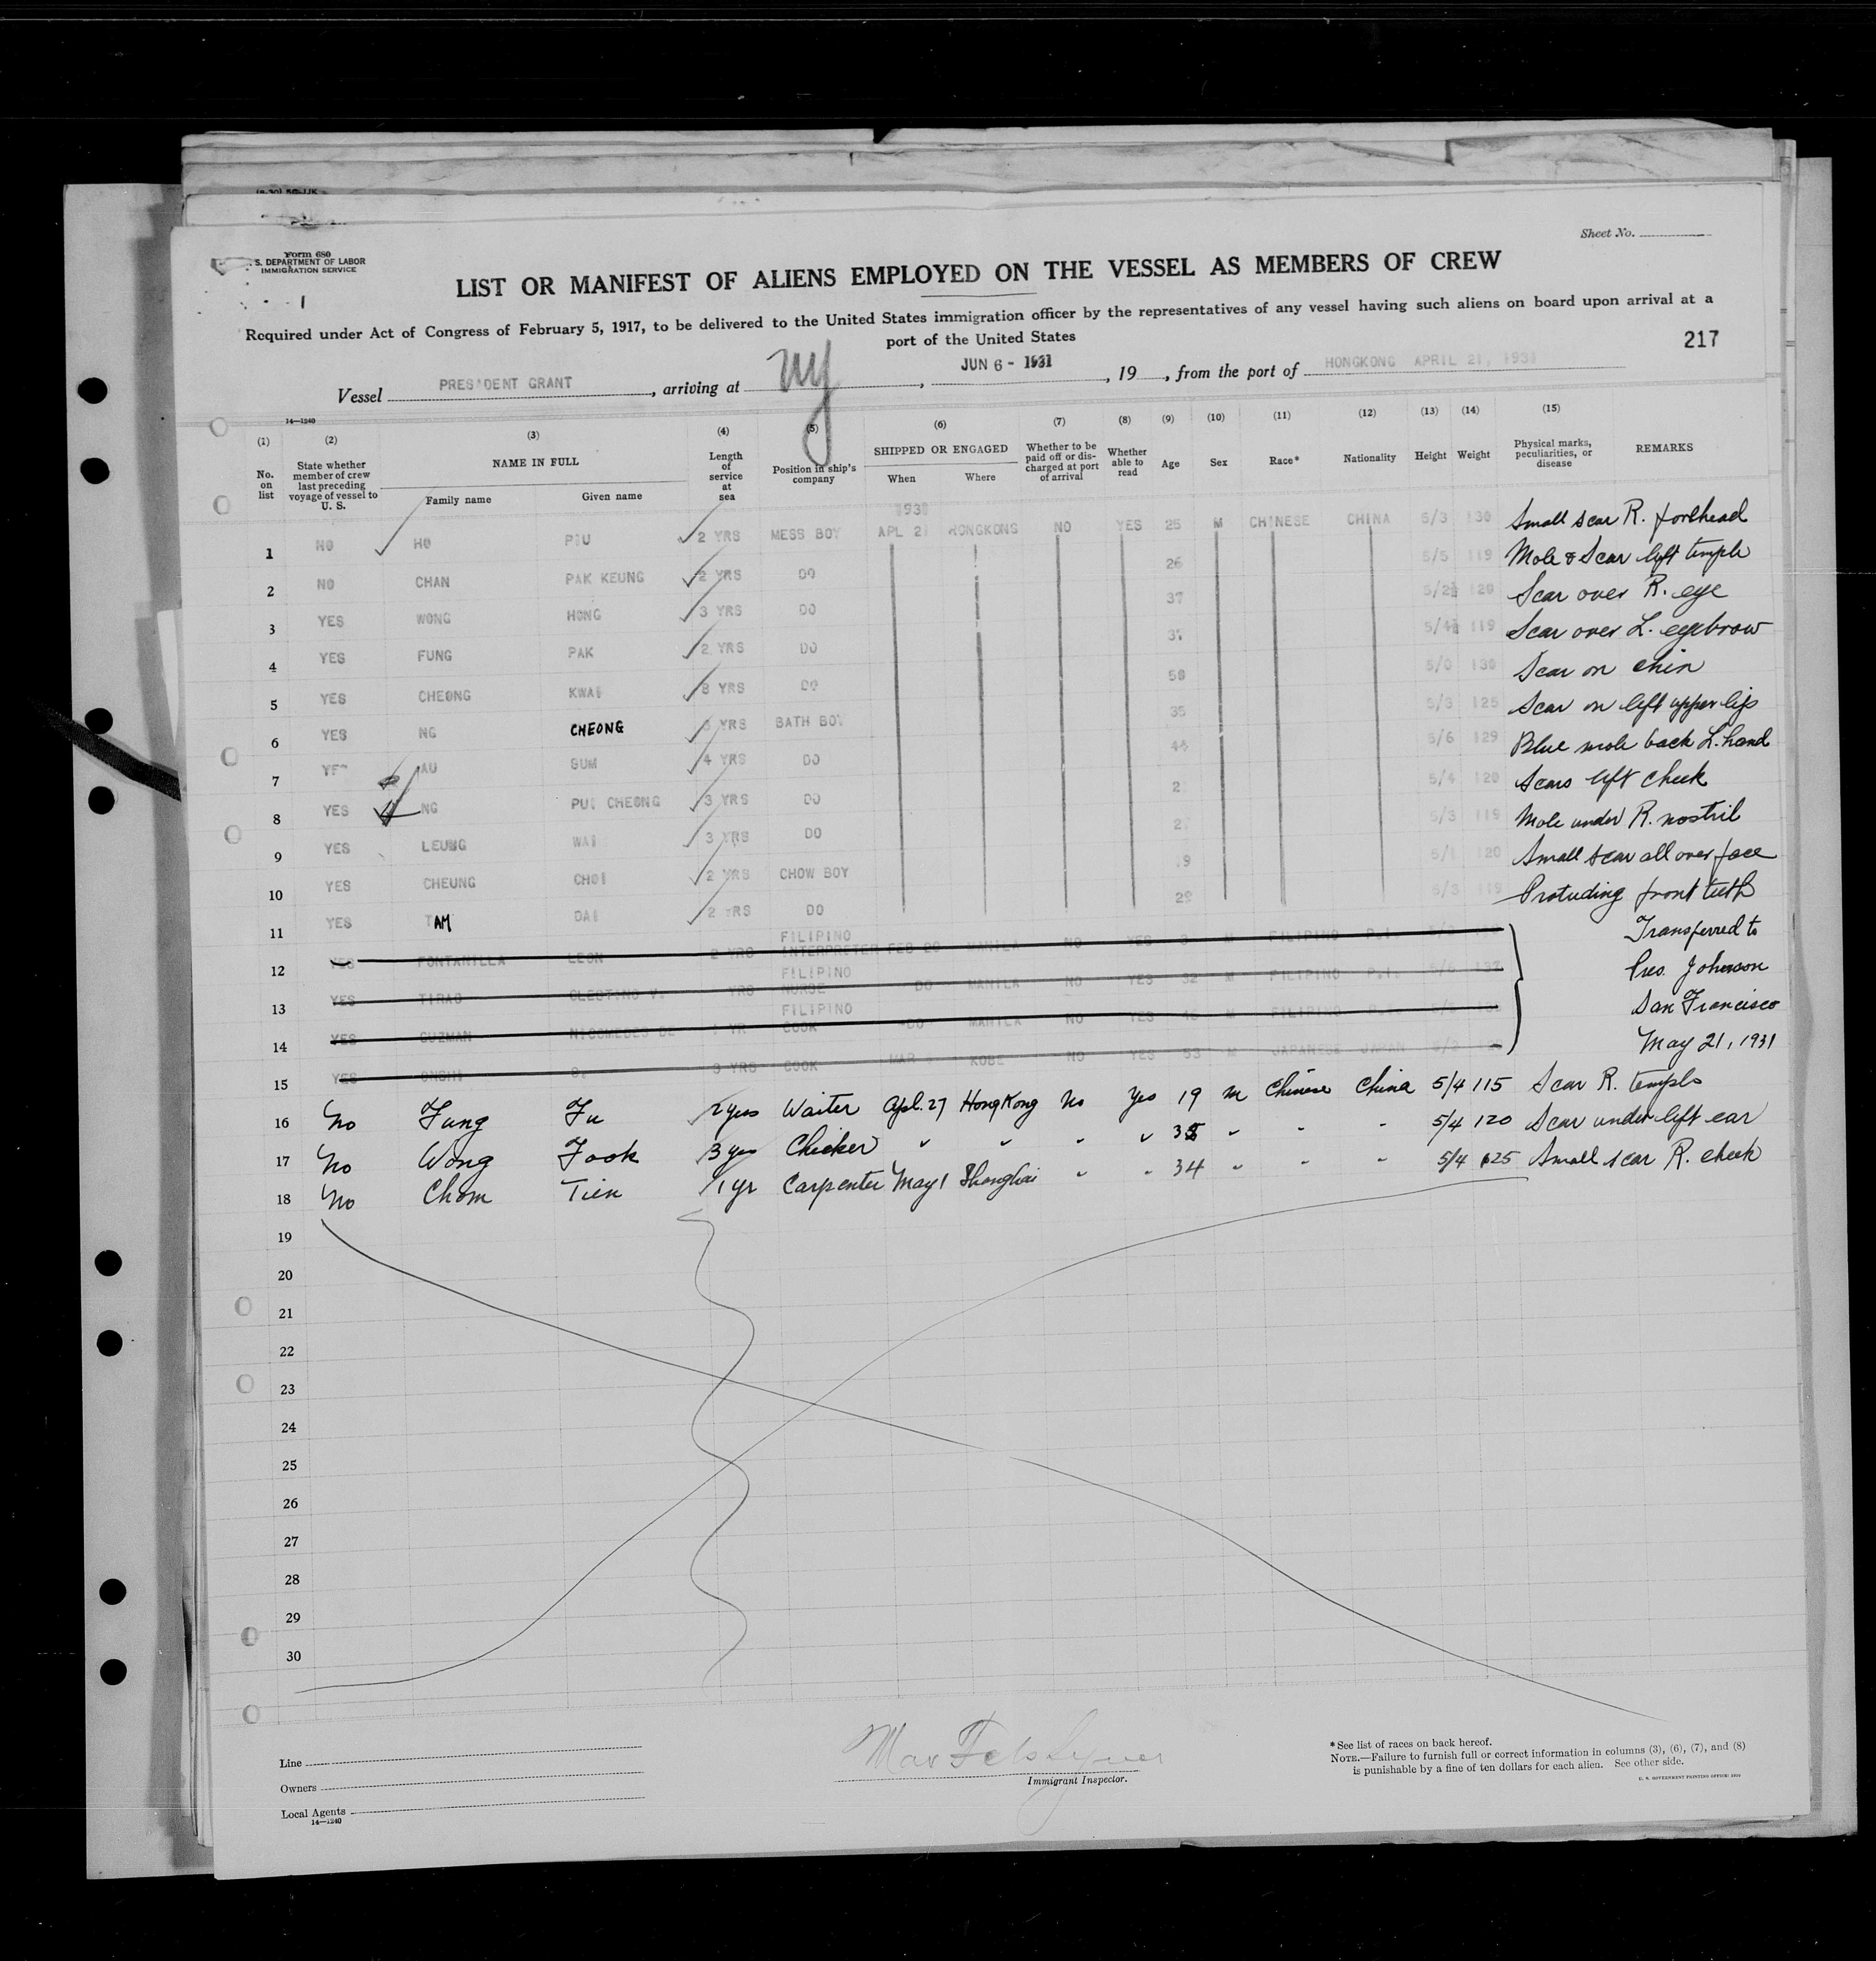 Sheet No.
Form 680
S. DEPARTMENT OF LABOR
IMMIGRATION SERVICE
LIST OR MANIFEST OF ALIENS EMPLOYED ON THE VESSEL AS MEMBERS OF CREW
Required under Act of Congress of February 5, 1917, to be delivered to the United States immigration officer by the representatives of any vessel having such aliens on board upon arrival at a
port of the United States
217
Vessel PRESIDENT GRANT, arriving at NY, JUN 6 - 1931, 19, from the port of HONGKONG APRIL 21, 1931
14—1240
(1) (2) (3) (4) (5) (6) (7) (8) (9) (10) (11) (12) (13) (14) (15)
No. on list State whether member of crew last preceding voyage of vessel to U. S. NAME IN FULL Family name Given name Length of service at sea Position in ship's company SHIPPED OR ENGAGED When Where Whether to be paid off or discharged at port of arrival Whether able to read Age Sex Race* Nationality Height Weight Physical marks, peculiarities, or disease REMARKS
1931
1 NO HO PIU 2 YRS MESS BOY APL 21 HONGKONG NO YES 25 M CHINESE CHINA 5/3 130 Small scar R. forehead
2 NO CHAN PAK KEUNG 2 YRS DO 26 5/5 119 Mole & Scar left temple
3 YES WONG HONG 3 YRS DO 37 5/2½ 120 Scar over R. eye
4 YES FUNG PAK 2 YRS DO 5/4½ 119 Scar over L. eyebrow
5 YES CHEONG KWAI 8 YRS DO 50 5/0 130 Scar on chin
6 YES NG CHEONG YRS BATH BOY 35 5/3 125 Scar on left upper lip
7 YES AU SUM 4 YRS DO 44 5/6 129 Blue mole back L. hand
8 YES NG PUI CHEONG 3 YRS DO 5/4 120 Scars left cheek
9 YES LEUNG WAI 3 YRS DO 5/3 119 Mole under R. nostril
10 YES CHEUNG CHOI 2 YRS CHOW BOY 5/1 120 Small scar all over face
11 YES TAM DAI 2 YRS DO 29 5/3 119 Protuding front teeth
12 YES FONTANILLA LEON 2 YRS FILIPINO INTERPRETER FEB 20 MANILA NO YES M FILIPINO P.I. Transferred to
13 YES TIRAO CLESTINO V. YRS FILIPINO NURSE DO MANILA NO YES 32 M FILIPINO P.I. 5/6 137 Pres. Johnson
14 YES GUZMAN NICOMEDES DE YR FILIPINO COOK DO MANILA NO YES M FILIPINO P.I. San Francisco
15 YES 3 YRS COOK MAR KOBE NO YES 53 M JAPANESE JAPAN May 21, 1931
16 No Fung Fu 2 yrs Waiter Apl. 27 HongKong No Yes 19 M Chinese China 5/4 115 Scar R. temple
17 No Wong Fook 3 yrs Checker " " " " 35 " " " 5/4 120 Scar under left ear
18 No Chom Tien 1 yr Carpenter May 1 Shanghai " " 34 " " " 5/4 125 Small scar R. cheek
19
20
21
22
23
24
25
26
27
28
29
30
Line
Owners
Local Agents
14—1240
Immigrant Inspector.
*See list of races on back hereof.
NOTE.—Failure to furnish full or correct information in columns (3), (6), (7), and (8)
is punishable by a fine of ten dollars for each alien. See other side.
U. S. GOVERNMENT PRINTING OFFICE: 1930